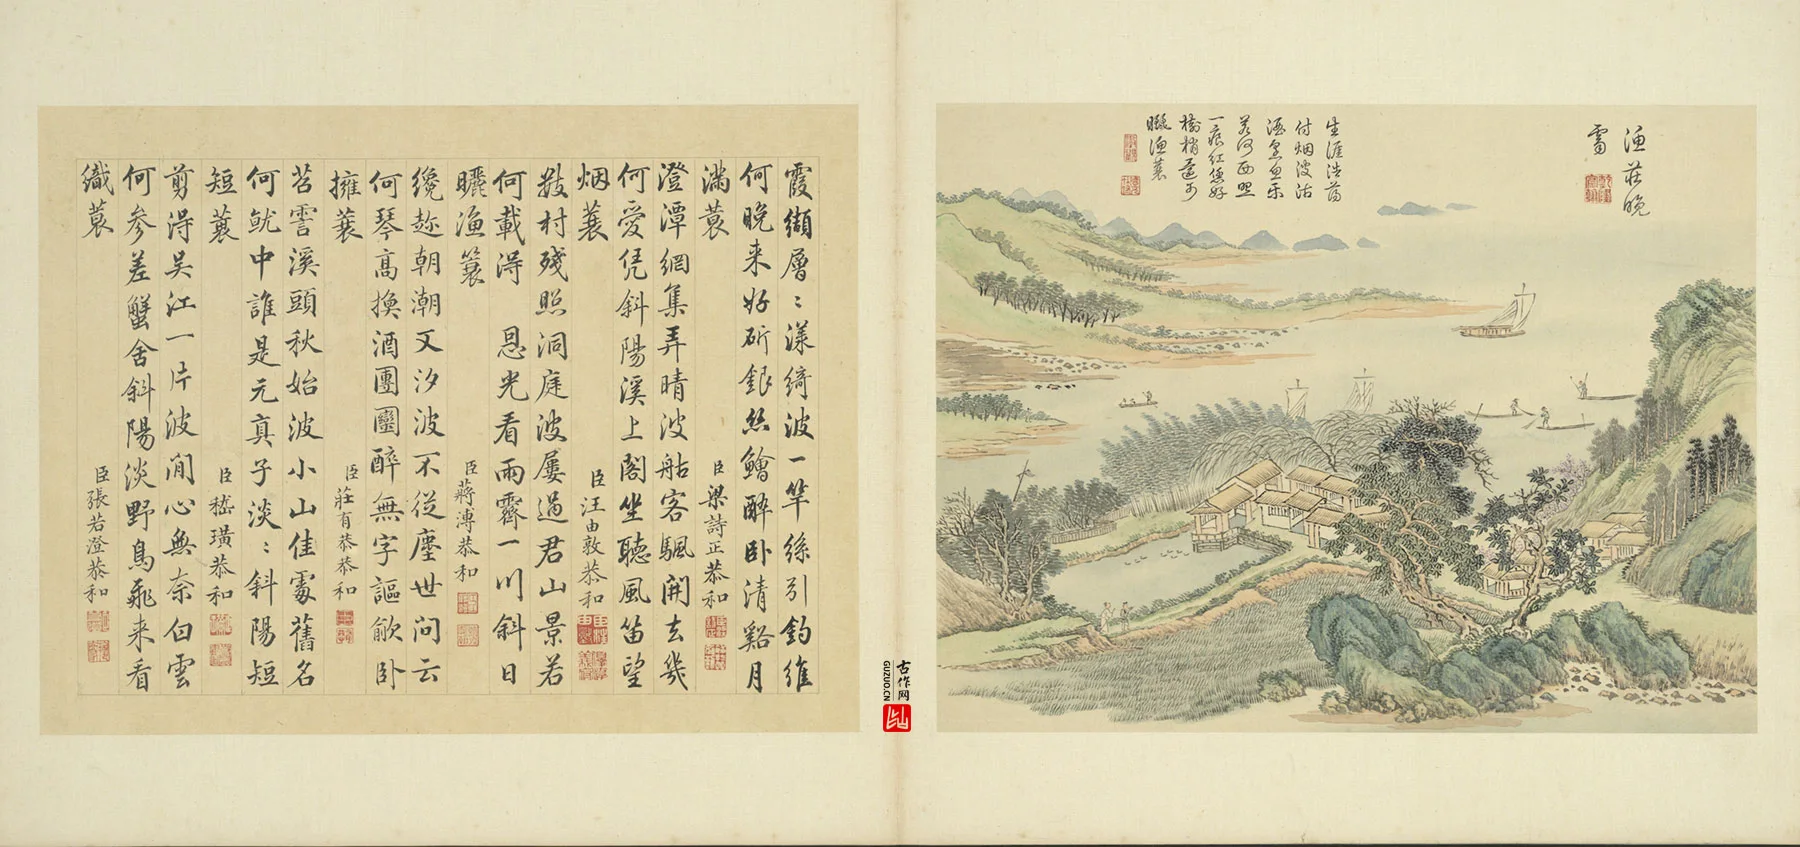 漁莊晚
霽
生涯浩蕩
付烟波沽
酒烹魚樂
若何西照
一痕紅恁好
樹梢還可
曬漁蓑
霞纈層〻漾綺波一竿絲引釣維
何晚来好斫銀絲鱠醉卧清谿月
滿蓑 臣梁詩正恭和
澄潭網集弄晴波舫客颿開去幾
何愛凭斜陽溪上閣坐聽風笛望
烟蓑 臣汪由敦恭和
數村殘照洞庭波屢過君山景若
何載淂 恩光看雨霽一川斜日
曬漁蓑 臣蔣溥恭和
纔趂朝潮又汐波不從塵世问云
何琴高換酒團圞醉無字謳歈卧
擁蓑 臣莊有恭恭和
苕霅溪頭秋始波小山佳處舊名
何觥中誰是元真子淡〻斜陽短
短蓑 臣嵇璜恭和
剪淂吴江一片波閒心無奈白雲
何参差蟹舍斜陽淡野鳥飛来看
織蓑 臣張若澄恭和
古作网
GUZUO.CN